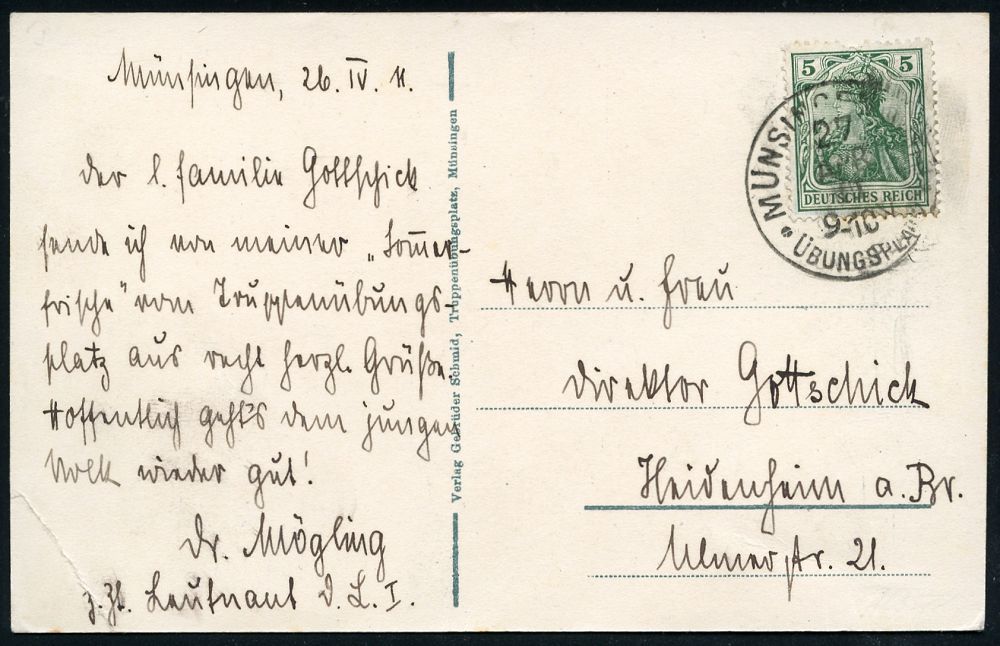 Münsingen, 26. IV. 11.
Der l. Familie Gottschick
sende ich von meiner „Sommer-
frische“ vom Truppenübungs-
platz aus recht herzl. Grüße.
Hoffentlich geht's dem jungen
Volk wieder gut!
Dr. Mögling
z. Zt. Leutnant d. L. I.
Verlag Gebrüder Schmid, Truppenübungsplatz, Münsingen
5 5
DEUTSCHES REICH
MÜNSINGEN
27
APR
11
9-10V
* ÜBUNGSPLATZ
Herrn u. Frau
Direktor Gottschick
Heidenheim a. Br.
Ulmerstr. 21.